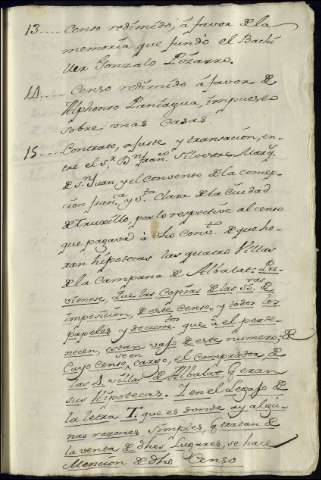 13.... Censo redimido, á favor de la
memoria que fundó el Bachi
ller Gonzalo Pizarro.
14.... Censo redimido á favor de
Alphonso Paniagua, impuesto
sobre unas Casas.
15.... Contrato, ajuste y transacion, en-
tre el s.r Dn Juan Silvestre Marq.s
de Sn Juan, y el convento de la concep-
cion fran.ca y Sta. Clara de la Ciudad
de truxillo, por lo respective al censo
que pagava á dho Convto. de que ho-
ran hipotecas las quatro Villas
de la Campana de Albalat:
vienese, que las Copias de las
impusicion, de este censo, y todos los
papeles y documtos. que á el perte-
necen, estan vajo de este numero, de
Cuyo censo, se en cargó, el comprador de
las 4 villas de Albalat q.e eran
sus hipotecas. Y en el Legajo de
la letra T. que es donde ay algu-
nas razones simples, q.e tratan de
la venta de dhos Lugares, se hace
Mencion de dho Censo